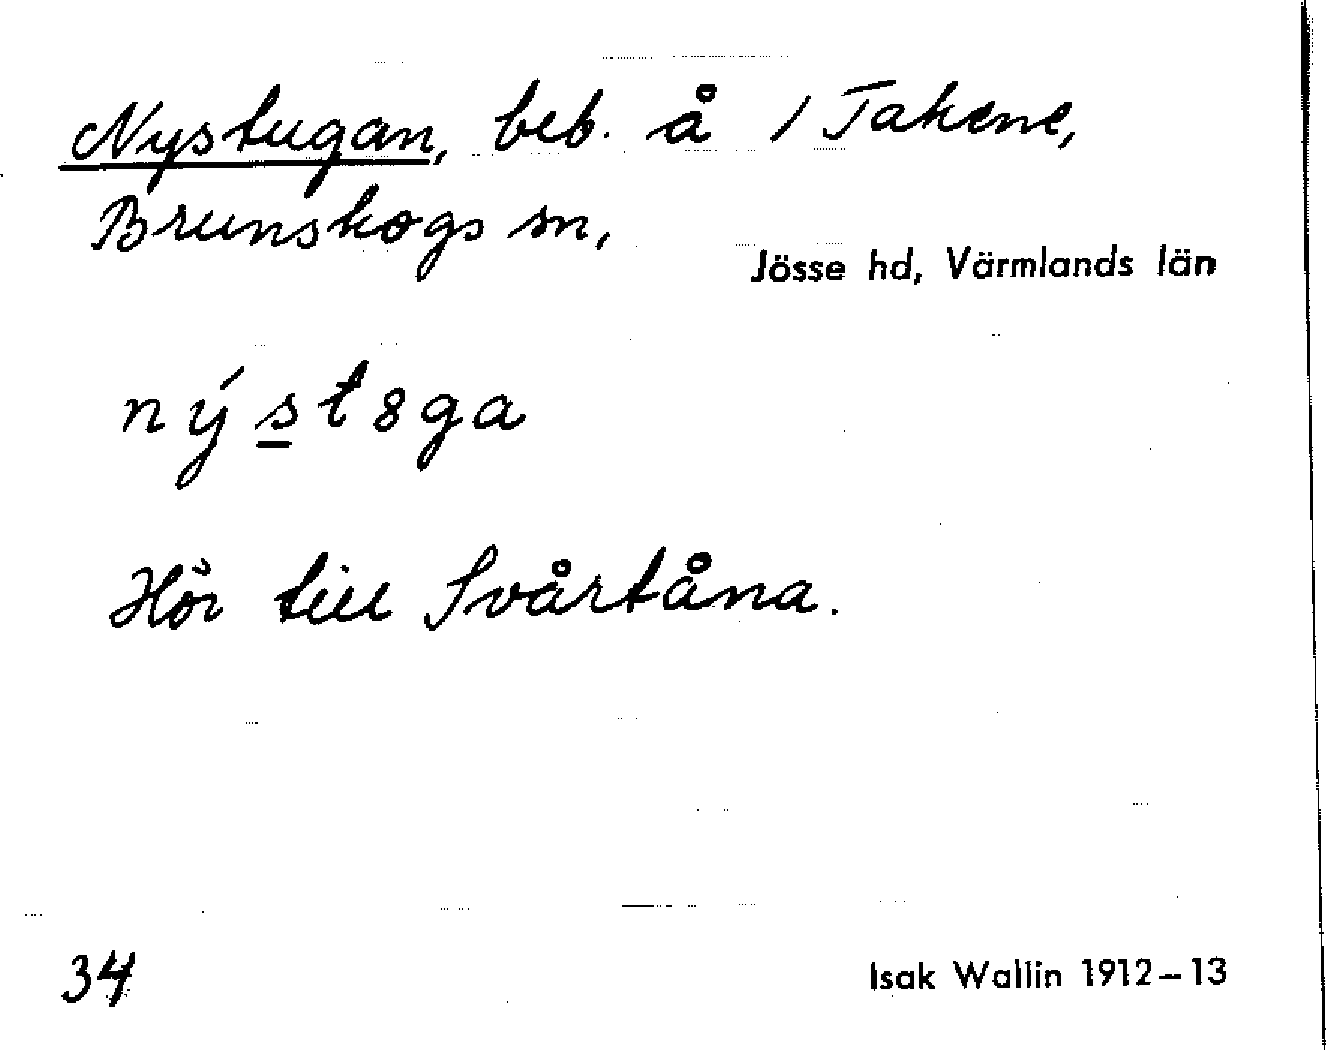 Nystugan, beb. å 1 Takene,
Brunskogs sn,
Jösse hd, Värmlands län
nýst8ga
Hör till Svårtåna.
34
Isak Wallin 1912–13